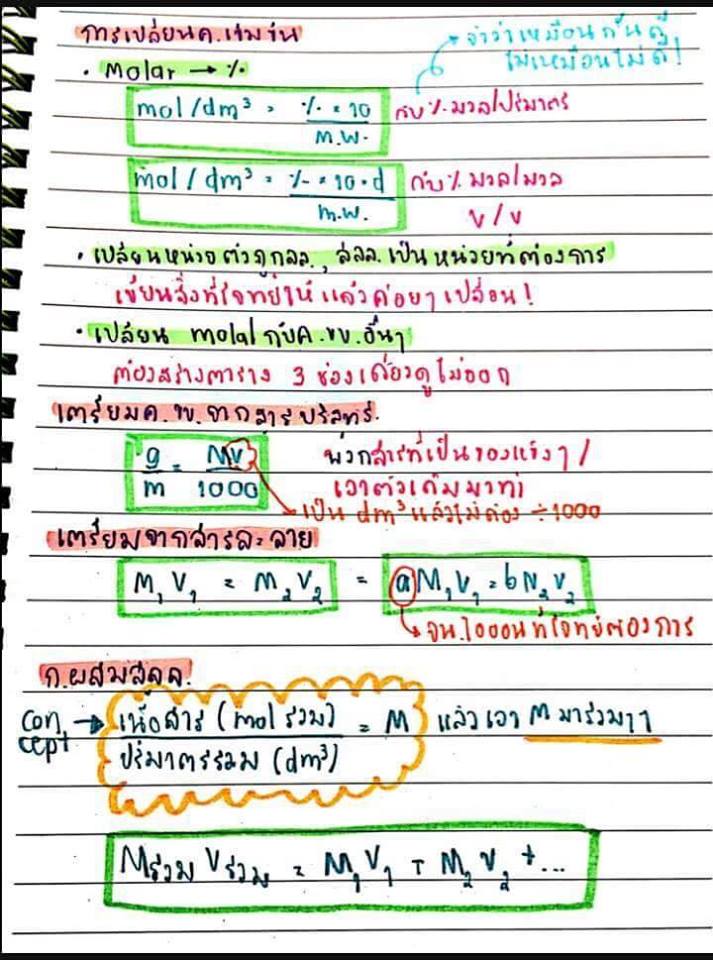 การเปลี่ยนค.เข้มข้น
จำว่าเหมือนกันคู่
ไม่เหมือนไม่ดี!
• Molar → %
mol/dm³ = % × 10 / m.w. กับ % มวล/ปริมาตร
mol/dm³ = % × 10 · d / m.w. กับ % มวล/มวล
v/v
• เปลี่ยนหน่วยตัวถูกลล., สลล. เป็นหน่วยที่ต้องการ
เขียนสิ่งที่โจทย์ให้ แล้วค่อยๆ เปลี่ยน!
• เปลี่ยน molal กับค.ขข.อื่นๆ
ต้องสร้างตาราง 3 ช่องเดี๋ยวดูไม่ออก
เตรียมค.ขข.จากสารบริสุทธิ์.
g/m = MV/1000 พวกสารที่เป็นของแข็งๆ /
เอาตัวเดิมมาทำ
เป็น dm³ แล้วไม่ต้อง ÷1000
เตรียมจากสารละลาย
M₁V₁ = M₂V₂ = aM₁V₁ = bN₂V₂
จน.ไอออนที่โจทย์ต้องการ
ก.ผสมสลล.
concept → เนื้อสาร (mol รวม) / ปริมาตรรวม (dm³) = M แล้วเอา M มารวมๆ
Mรวม Vรวม = M₁V₁ + M₂V₂ + ...